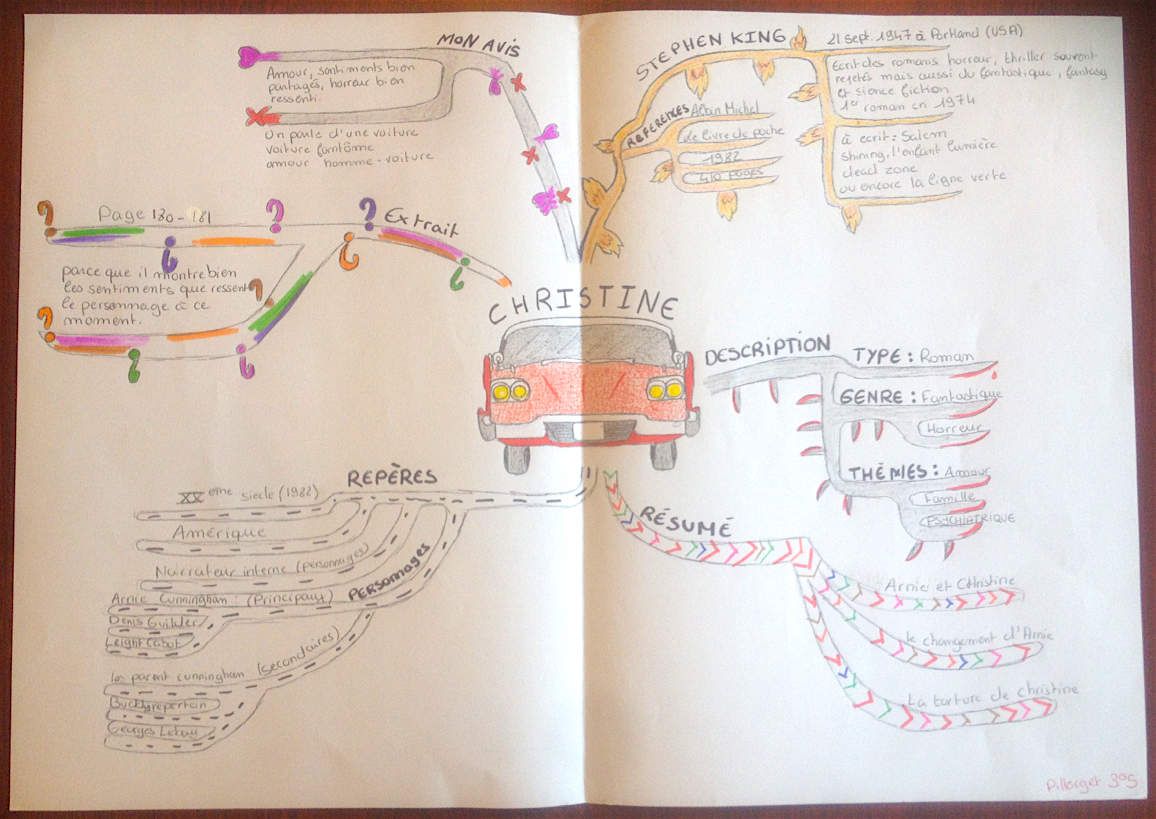 MON AVIS
Amour, sentiments bien
partagés, horreur bien
ressenti.
On parle d'une voiture
voiture fantôme
amour homme-voiture
STEPHEN KING
21 sept. 1947 à Portland (USA)
Ecrit des romans horreur, thriller souvent
rejetés mais aussi du fantastique, fantasy
et sience fiction
1er roman en 1974
à ecrit: Salem
shining, l'enfant lumière
dead zone
ou encore la ligne verte
REFERENCES
Albin Michel
de livre de poche
1982
410 pages
Extrait
Page 130-181
parce que il montre bien
les sentiments que ressent
le personnage à ce
moment.
CHRISTINE
DESCRIPTION
TYPE: Roman
GENRE: Fantastique
Horreur
THÈMES: Amour
Famille
PSYCHIATRIQUE
REPÈRES
XX eme siecle (1982)
Amérique
Narrateur interne (personnages)
PERSONNAGES
Arnie Cunningham: (Principaux)
Denis Guilder
Leight Cabot
les parent cunningham (secondaires)
Buddy repertain
Georges Lebay
RÉSUMÉ
Arnie et Christine
le changement d'Arnie
La torture de christine
Pillorget 3°5